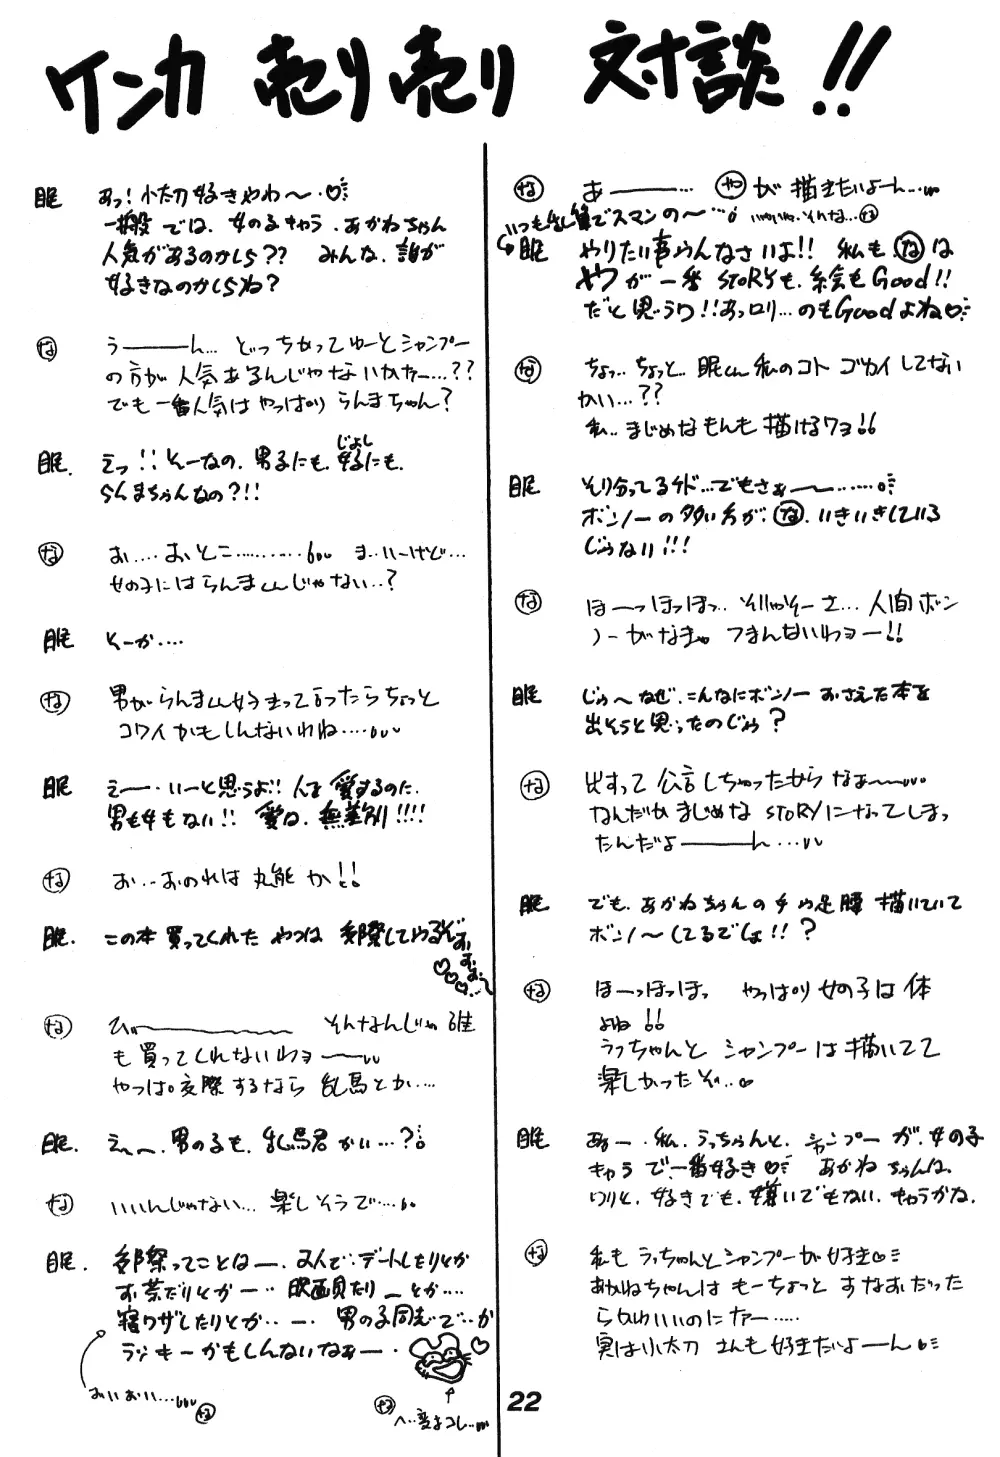 ケンカ 売り売り 対談!!
眠 あっ!小太刀好きやわ〜・♡
一般では、女のるキャラ、あかねちゃん
人気があるのかしら?? みんな、誰が
好きなのかしらね?
な うーーーん… どっちかってゆーとシャンプー
の方が人気あるんじゃないかなー…??
でも一番人気はやっぱりらんまちゃん?
眠. えっ!!そーなの、男子にも、女子にも、
じょし
らんまちゃんなの?!!
な お….おとこ………… ま‥いーけど…
女の子にはらんまくんじゃない‥?
眠 そーか‥‥
な 男がらんまくん好きって言ったらちょっと
コワイかもしんないわね‥‥
眠 えー・いーと思うよ!!人を愛するのに、
男も女もない!! 愛は、無差別!!!!
な お‥‥おのれは丸能か!!
眠. この本買ってくれたやつは 交際してやるぞ
な ひぃーーーー そんなんじゃ誰
も買ってくれないわヨーー
やっぱ。交際するなら 乱馬とか‥‥
眠. えー、男のるも、乱馬君かい…?
な いいんじゃない… 楽しそうで…
眠. 交際ってことはー、2人で・デートしたりとか
お茶だりとかー‥ 映画見たりーとか‥‥
寝ワザしたりとか‥ー・ 男の子同志で‥か
ラッキーかもしんないなぁー・・
おいおい… な
な へ‥変なコレ‥
な あーーー… やが描きたいよーん…
いつも乱筆でスマンの〜… いやいや、そんな… な
眠 やりたい事やんなさいよ!! 私も なは
やが一番 STORYも、絵もGood!!
だと思うワ!!あっロリ…のもGoodよね♡
な ちょっ‥ちょっと‥眠くん私のコト ゴカイしてない
かい…??
私‥まじめなもんも描けるワヨ!!
眠 そり分ってるケド…でもさぁー〜‥‥‥
ボンノーの多い方が、な、いきいきしている
じゃない!!!
な ほーっほっほっ‥ そりゃそーさ… 人間ボン
ノーがなきゃ つまんないわヨー!!
眠 じゃ〜なぜ、こんなにボンノー おさえた本を
出そうと思ったのじゃ?
な 出すって 公言しちゃったからなぁ〜〜
なんだかまじめな STORYになってしまっ
たんだよーーーん…
眠 でも、あかねちゃんの手や足腰 描いていて
ボンノ〜してるでしょ!!?
な ほーっほっほっ やっぱり女の子は体
よね!!
うっちゃんと シャンプーは描いてて
楽しかったぞ‥
眠 あー・私、うっちゃんと、シャンプーが、女の子
キャラで一番好き♡ あかねちゃんは、
わりと、好きでも、嫌いでもない、キャラかな.
な 私もうっちゃんとシャンプーが好き♡
あかねちゃんは もーちょっと すなおだった
らかわいいのにナァー‥‥
実は小太刀さんも好きだよーん♡
22